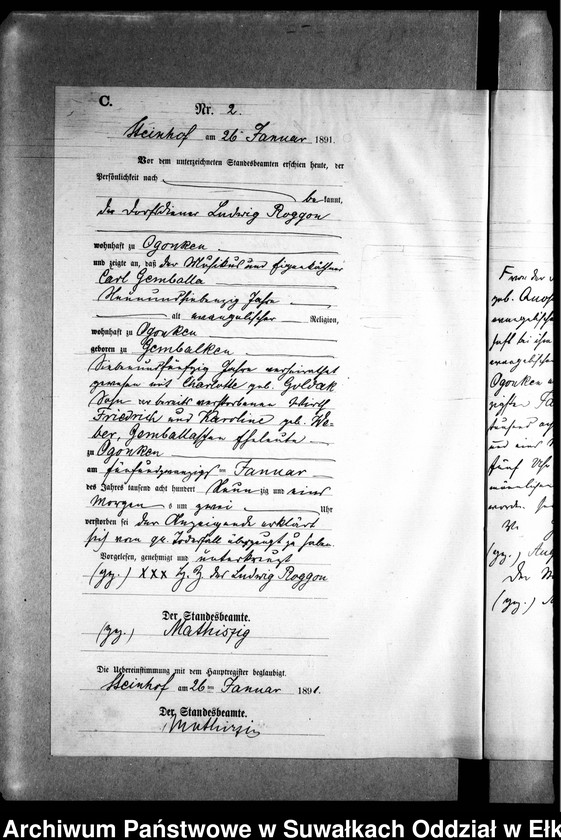 C.
Nr. 2.
Steinhof am 26ten Januar 1891.
Vor dem unterzeichneten Standesbeamten erschien heute, der
Persönlichkeit nach
bekannt,
der Dorfdiener Ludwig Roggon
wohnhaft zu Ogonken
und zeigte an, daß der Musikus und Eigenkäthner
Carl Gemballa
Neunundsiebenzig Jahre
alt evangelischer Religion,
wohnhaft zu Ogonken
geboren zu Gembalken
Siebenundfünfzig Jahre verheirathet
gewesen mit Charlotte geb. Guldak
Sohn der bereits verstorbenen Wirth
Friedrich und Karoline geb. We-
ber, Gemballaschen Eheleute
zu Ogonken
am fünfundzwanzigsten Januar
des Jahres tausend acht hundert Neunzig und eins
Morgens um zwei Uhr
verstorben sei der Anzeigende erklärt
sich von qu. Todesfall überzeugt zu haben.
Vorgelesen, genehmigt und unterkreuzt
(gez.) XXX H. Z des Ludwig Roggon
Der Standesbeamte.
(gez.) Mathiszig
Die Uebereinstimmung mit dem Hauptregister beglaubigt.
Steinhof am 26ten Januar 1891.
Der Standesbeamte.
Mathiszig
geb.
evangelische
evangelischen
Ogonken
und ein
fünf Uhr
V.
(gez.) Aug
Der
(gez.)
Archiwum Państwowe w Suwałkach Oddział w Ełk